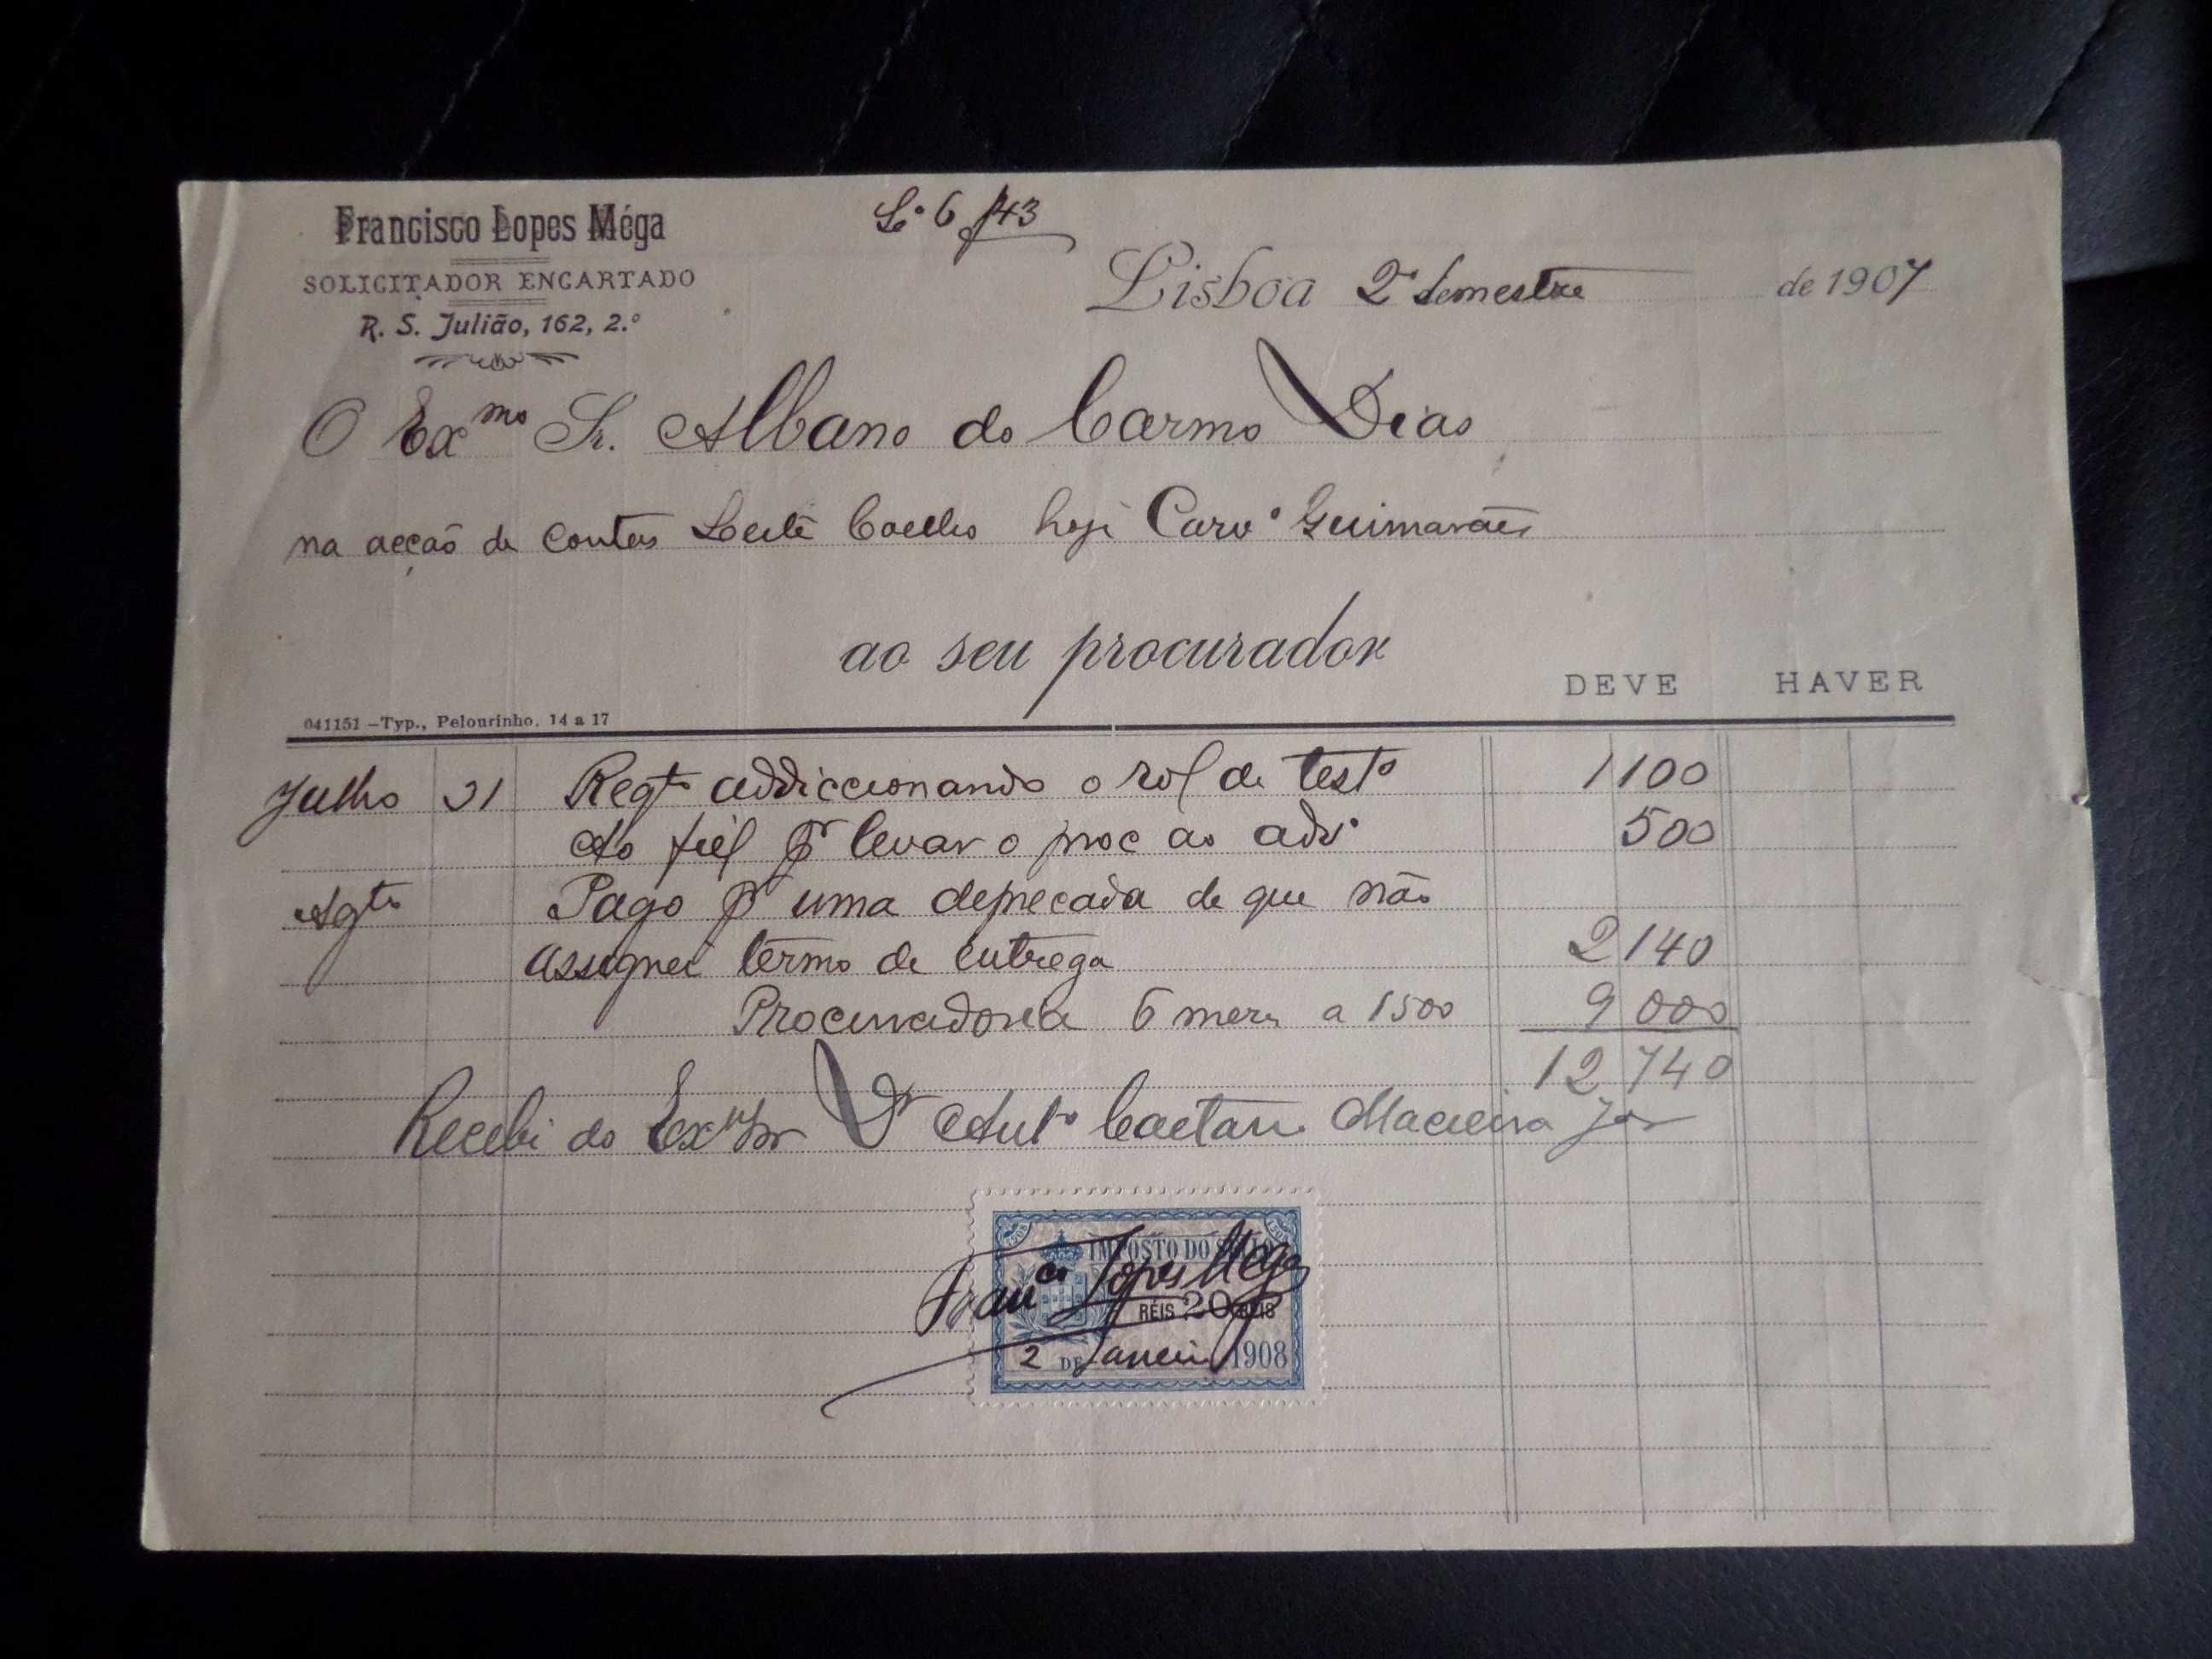 Francisco Lopes Méga
SOLICITADOR ENCARTADO
R. S. Julião, 162, 2.º
L.º 6 f 43
Lisboa 2º Semestre de 1907
O Exmo Sr. Albano do Carmo Dias
na acção de contas Leite Coelho hoje Carvº Guimarães
ao seu procurador
DEVE HAVER
041151 – Typ., Pelourinho, 14 a 17
Julho 31 Reqto addiccionando o rol de testº 1100
Ao fiel pr levar o proc ao advº 500
Agto Pago pr uma deprecada de que não
assignei termo de entrega 2140
Procuradoria 6 mezes a 1500 9000
12740
Recebi do Exmo Sr Dr Antº Caetano Macieira Jor
IMPOSTO DO SELLO
Franco Lopes Mega
RÉIS 20 RÉIS
2 DE Janeiro 1908